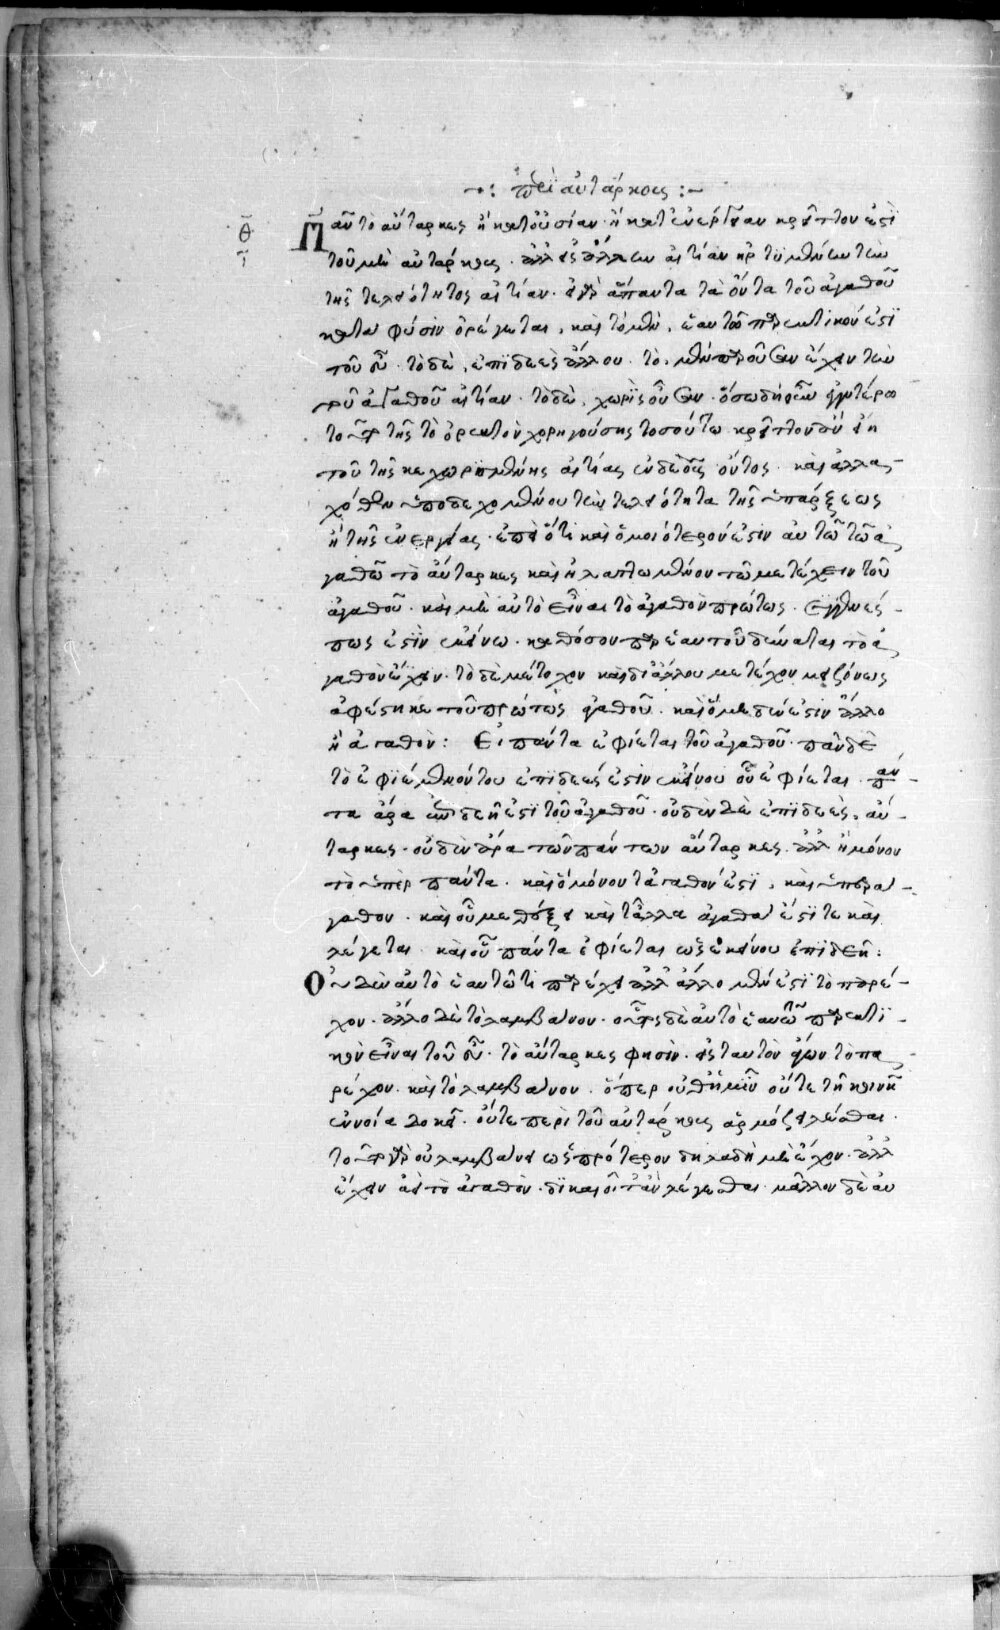 περὶ αὐτάρκους
θ
Πᾶν τὸ αὔταρκες ἢ κατ' οὐσίαν ἢ κατ' ἐνέργειαν κρεῖττον ἐστὶ
τοῦ μὴ αὐτάρκους. ἀλλ' εἰς ἄλλην αἰτίαν ἀνηρτημένου τὴν
τῆς τελειότητος αἰτίαν. εἰ γὰρ ἅπαντα τὰ ὄντα τοῦ ἀγαθοῦ
κατὰ φύσιν ὀρέγεται, καὶ τὸ μὲν, ἑαυτῷ παρεκτικόν ἐστι
τοῦ εὖ. τὸ δὲ, ἐπιδεὲς ἄλλου. τὸ μὲν παροῦσαν ἔχει τὴν
τοῦ ἀγαθοῦ αἰτίαν. τὸ δὲ, χωρὶς οὖσαν. ὅσῳ δὴ οὖν ἐγγυτέρω
τοῦτο τῆς τὸ ὀρεκτὸν χορηγούσης τοσούτῳ κρεῖττον ἂν εἴη
τοῦ τῆς κεχωρισμένης αἰτίας ἐνδεοῦς ὄντος. καὶ ἀλλα-
χόθεν ὑποδεχομένου τὴν τελειότητα τῆς ὑπάρξεως
ἢ τῆς ἐνεργείας. ἐπεὶ ὅτι καὶ ὁμοιότερόν ἐστιν αὐτῷ τῷ ἀ-
γαθῷ τὸ αὔταρκες καὶ ἠλαττωμένον τῷ μετέχειν τοῦ
ἀγαθοῦ. καὶ μὴ αὐτὸ εἶναι τὸ ἀγαθὸν πρώτως. συγγενές
πως ἐστὶν ἐκείνῳ. καθόσον παρ' ἑαυτοῦ δύναται τὸ ἀ-
γαθὸν ἔχειν. τὸ δὲ μέτοχον καὶ δι' ἄλλου μετέχον μειζόνως
ἀφέστηκε τοῦ πρώτως ἀγαθοῦ. καὶ ὃ μηδέν ἐστιν ἄλλο
ἢ ἀγαθόν: Εἰ πάντα ἐφίεται τοῦ ἀγαθοῦ. πᾶν δὲ
τὸ ἐφιέμενόν του ἐπιδεές ἐστιν ἐκείνου οὗ ἐφίεται. πάν-
τα ἄρα ἐπιδεῆ ἐστι τοῦ ἀγαθοῦ. οὐδὲν δὲ ἐπιδεὲς, αὔ-
ταρκες. οὐδὲν ἄρα τῶν πάντων αὔταρκες. ἀλλ' ἢ μόνον
τὸ ὑπὲρ πάντα. καὶ ὃ μόνον τἀγαθόν ἐστι, καὶ ὑπερά-
γαθον. καὶ οὗ μεθέξει καὶ τἄλλα ἀγαθά ἐστί τε καὶ
λέγεται. καὶ οὗ πάντα ἐφίεται ὡς ἐκείνου ἐπιδεῆ:
Οὐδὲν αὐτὸ ἑαυτῷ τι παρέχει ἀλλ' ἄλλο μέν ἐστι τὸ παρέ-
χον. ἄλλο δὲ τὸ λαμβάνον. οὗτος δὲ αὐτὸ ἑαυτῷ παρεκτι-
κὸν εἶναι τοῦ εὖ. τὸ αὔταρκες φησὶν. εἰς ταὐτὸν ἄγων τὸ πα-
ρέχον. καὶ τὸ λαμβάνον. ὅπερ οὐθ' ἡμῖν οὔτε τῇ κοινῇ
ἐννοίᾳ δοκεῖ. οὔτε περὶ τοῦ αὐτάρκους ἁρμόζει λέγεσθαι.
τοῦτο γὰρ οὐ λαμβάνει ὡς πρότερον δηλαδὴ μὴ ἔχον. ἀλλ'
ἔχειν ἀεὶ τὸ ἀγαθὸν. δίκαιόν ἐστιν λέγεσθαι. μᾶλλον δὲ αὐ